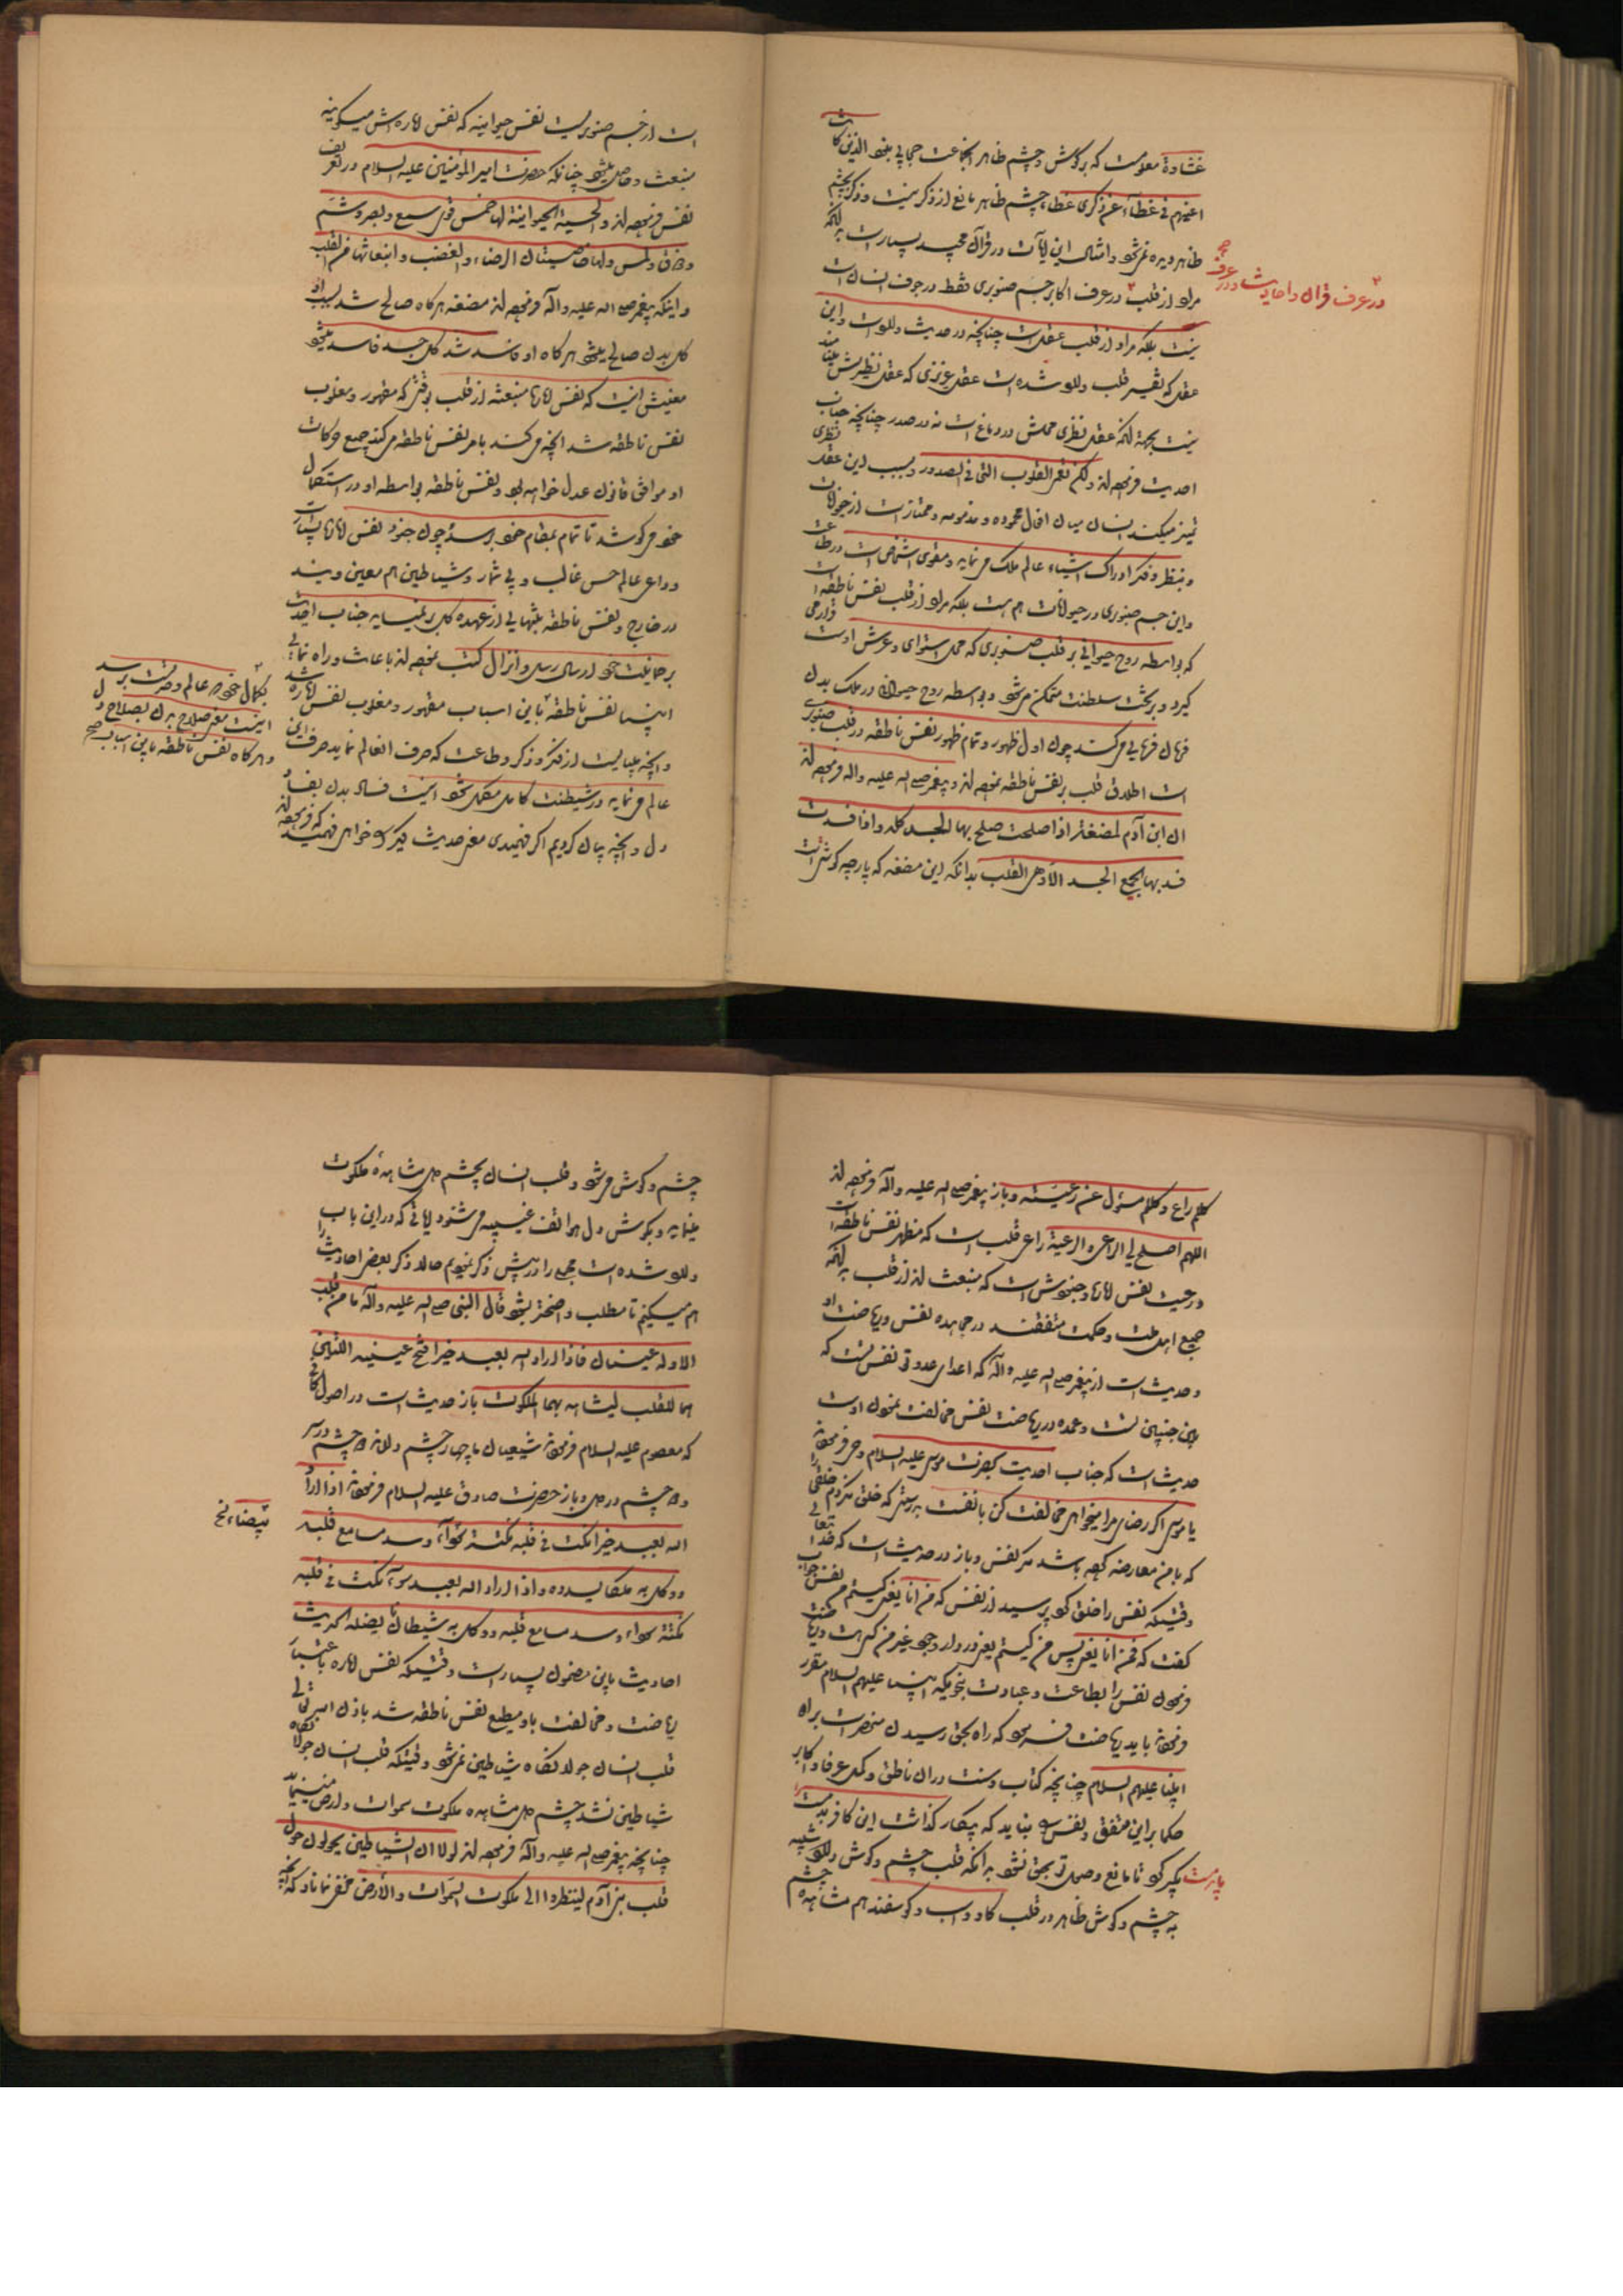 غشاوة معلومست که بر گوش و چشم ظاهر اینجماعت حجابی نبود الذین کانت
اعینهم فی غطاء عن ذکری غطاء چشم ظاهر مانع از ذکر نیست و ذکر بچشم
ظاهر دیده نمیشود و امثال این آیات در قرآن مجید بسیار است بدانکه
مراد از قلب در عرف اکابر جسم صنوبری فقط در جوف انسان است
در عرف قرآن و احادیث و در عرف صح
نیست بلکه مراد از قلب عقل است چنانچه در حدیث وارد است و این
عقل که تفسیر قلب وارد شده است عقل غریزی که عقل نظریش مینامند
نیست بجهة آنکه عقل نظری محلش در دماغ است نه در صدر چنانچه جناب
احدیت فرموده‌اند ولکن تعمی القلوب التی فی الصدور و بسبب این عقل نظری
تمیز میکند انسان میان افعال محموده و مذمومه و ممتاز است از حیوانات
و بنظر و فکر ادراک اشیاء عالم ملک می نماید و مقوی اشخاص است در طاعت
و این جسم صنوبری در حیوانات هم هست بلکه مراد از قلب نفس ناطقه است
که بواسطه روح حیوانی بر قلب صنوبری که محل استوای و عرش اوست قرار می
گیرد و بر تخت سلطنت متمکن میشود و بواسطه روح حیوانی در ملک بدن
فرمان فرمایی می کند چون اول ظهور و تمام ظهور نفس ناطقه در قلب صنوبری
است اطلاق قلب بر نفس ناطقه نموده‌اند و پیغمبر صلی الله علیه واله فرموده‌اند
ان ابن آدم لمضغة اذا صلحت صلح بها الجسد کله و اذا فسدت
فسد بها جمیع الجسد الا و هی القلب بدانکه این مضغه که پارچه گوشت است
است از جسم صنوبریست نفس حیوانیه که نفس اماره‌اش میگویند
منبعث و حاصل میشود چنانکه حضرت امیر المؤمنین علیه السلام در تعریف
نفس فرموده‌اند و الحسیة الحیوانیة لها خمس قوی سمع و بصر و شم
و ذوق و لمس و لها خاصیتان الرضاء و الغضب و انبعاثها من القلب
و اینکه پیغمبر صلی الله علیه واله فرموده‌اند مضغه هرگاه صالح شد بسبب او
کل بدن صالح میشود هرگاه او فاسد شد کل جسد فاسد میشود
معنیش اینست که نفس اماره منبعثه از قلب بوقتی که مقهور و مغلوب
نفس ناطقه شد آنچه می کند بامر نفس ناطقه می کند جمیع حرکات
او موافق قانون عدل خواهد بود و نفس ناطقه بواسطه او در استکمال
خود می کوشد تا تمام بمقام خود برسد و چون جنود نفس اماره بسیار است
و دواعی عالم حس غالب و بی شمار و شیاطین هم معین ویند
در خارج و نفس ناطقه بتنهایی از عهده کل بر نمیاید جناب احدیت
برحمانیت خود ارسال رسل و انزال کتب نموده‌اند باعانت و راه نمائی
انبیا نفس ناطقه باین اسباب مقهور و مغلوب نفس اماره شد
بکمال خود در عالم وحدت برسد
اینست معنی صلاح بدن بصلاح دل
و هرگاه نفس ناطقه باین اسباب صح
و آنچه میبایست از فکر و ذکر و طاعت که صرف آنعالم نماید صرف این
عالم می نماید و در شیطنت کامل مکمل میشود اینست فساد بدن بفساد
دل و آنچه بیان کردیم اگر فهمیدی معنی حدیث دیگر که خواهی فهمید که فرموده‌اند
کلکم راع و کلکم مسؤل عن رعیته و باز پیغمبر صلی الله علیه واله فرموده‌اند
اللهم اصلح لی الراعی و الرعیة راعی قلب است که مظهر نفس ناطقه است
و رعیت نفس اماره و جنودش است که منبعث اند از قلب بدانکه
جمیع اهل ملت و حکمت متفقند در مجاهده نفس و ریاضت او
و حدیث است از پیغمبر صلی الله علیه واله که اعدای عدو تو نفس تست که
بین جنبین تست و عمده در ریاضت نفس مخالفت نمودن اوست
حدیث است که جناب احدیت بحضرت موسی علیه السلام وحی فرموده
یا موسی اگر رضای مرا میخواهی مخالفت کن با نفست بدرستی که خلق نکردم خلقی را
که با من معارضه کرده باشد مگر نفس و باز در حدیث است که خدا تعالی
وقتیکه نفس را خلق کرد پرسید از نفس که من انا یعنی کیستم من نفس جواب
گفت که فمن انا یعنی پس من کیستم یعنی در دار وجود غیر من کی هست و ریاضت
فرمودن نفس را بطاعت و عبادت بنحویکه انبیا علیهم السلام مقرر
فرموده باید ریاضت فرمود که راه بحق رسیدن منحصر است براه
انبیا علیهم السلام چنانچه کتاب و سنت در آن ناطق و کل عرفا و اکابر
حکما بر این متفق و نفس را نباید که بیکار گذاشت این کافر بدمست را
پابست بگیر کو تا مانع وصول تو بحق نشود بدانکه قلب چشم و گوش دارد شبیه
به چشم و گوش ظاهر در قلب گاو و اسب و گوسفند هم مشاهده چشم
چشم و گوش میشود و قلب انسان بچشم دل مشاهده ملکوت
مینماید و بگوش دل هواتف غیبیه میشنود آیاتی که در این باب
وارد شده است مجملی را در پیش ذکر نمودیم حالا ذکر بعض احادیث را
هم میکنیم تا مطلب واضحتر بشود قال النبی صلی الله علیه واله ما من قلب
الا وله عینان فاذا اراد الله بعبد خیرا فتح عینیه اللتین
هما للقلب لیشاهد بهما الملکوت باز حدیث است در اصول کافی
که معصوم علیه السلام فرموده شیعیان ما چهار چشم دارند دو چشم در سر
دو چشم در دل و باز حضرت صادق علیه السلام فرموده اذا اراد
الله بعبد خیرا نکت فی قلبه نکتة سوداء و سد مسامع قلبه
بیضاء نخ
و وکل به ملکا یسدده و اذا اراد الله بعبد سوء نکت فی قلبه
نکتة سوداء و سد مسامع قلبه و وکل به شیطانا یضله الحدیث
احادیث باین مضمون بسیار است وقتیکه نفس اماره باعتبار
ریاضت و مخالفت باو مطیع نفس ناطقه شد باذن الله تعالی
قلب انسان جولانگاه شیاطین نمیشود وقتیکه قلب انسان جولانگاه
شیاطین نشد چشم دل مشاهده ملکوت سموات و ارض مینماید
چنانچه پیغمبر صلی الله علیه واله فرموده‌اند لولا ان الشیاطین یحولون حول
قلب بنی آدم لینظروا الی ملکوت السموات و الارض مخفی نماناد که آنچه